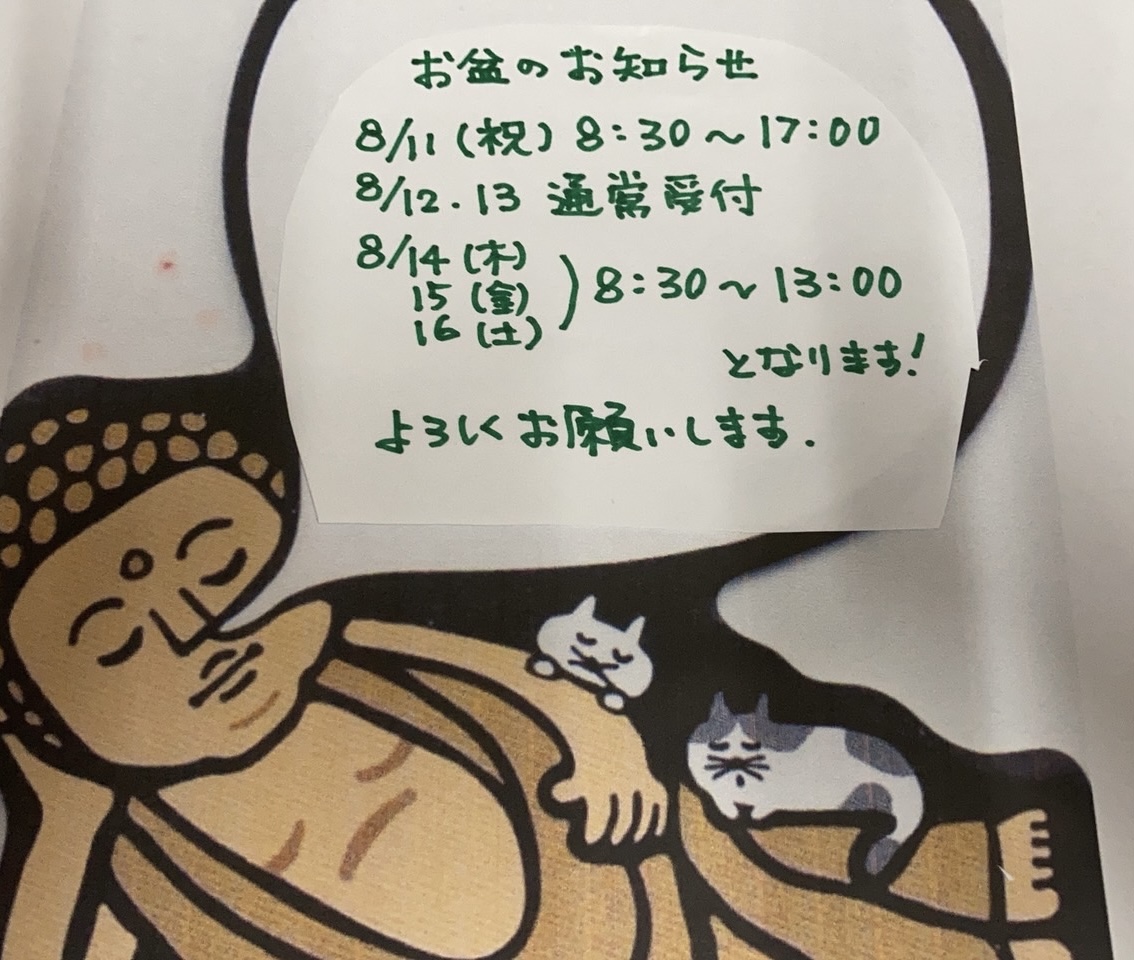 お盆のお知らせ
8/11(祝) 8:30～17:00
8/12.13 通常受付
8/14(木)
15(金)
16(土)
) 8:30～13:00
となります!
よろしくお願いします.